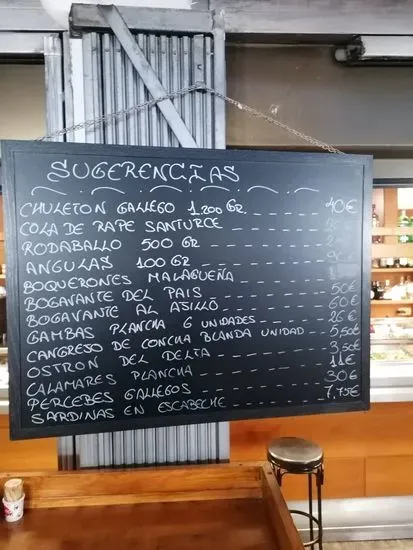 SUGERENCIAS
CHULETON GALLEGO 1.200 GR. 40€
COLA DE RAPE SANTURCE
RODABALLO 500 GR
ANGULAS 100 GR
BOQUERONES MALAGUEÑA
BOGAVANTE DEL PAIS 50€
BOGAVANTE AL ATILLO 60€
GAMBAS PLANCHA 6 UNIDADES 26€
CANGREJO DE CONCHA BLANDA UNIDAD 5,50€
OSTRON DEL DELTA 3,50€
CALAMARES PLANCHA 11€
PERCEBES GALLEGOS 30€
SARDINAS EN ESCABECHE 7,75€